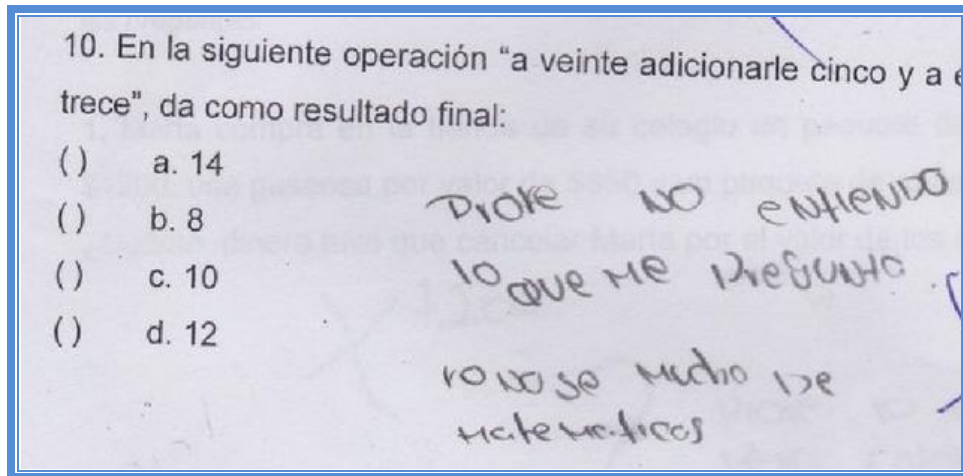 10. En la siguiente operación “a veinte adicionarle cinco y a e
trece", da como resultado final:
( ) a. 14
( ) b. 8
( ) c. 10
( ) d. 12
Profe NO ENtIENDO
lo QUE ME PreGUNtO
YO NO se Mucho De
MateMaticas